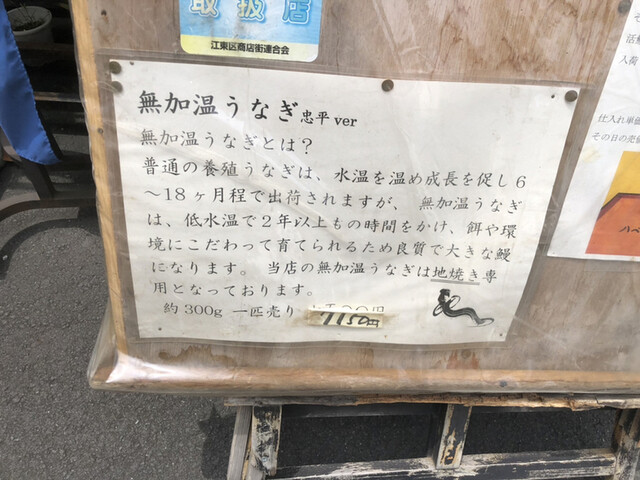 取扱店
江東区商店街連合会
無加温うなぎ忠平ver
無加温うなぎとは？
普通の養殖うなぎは、水温を温め成長を促し６
～18ヶ月程で出荷されますが、 無加温うなぎ
は、低水温で２年以上もの時間をかけ、餌や環
境にこだわって育てられるため良質で大きな鰻
になります。 当店の無加温うなぎは地焼き専
用となっております。
約300g 一匹売り 7150円
入荷
仕入れ単価
その日の売価